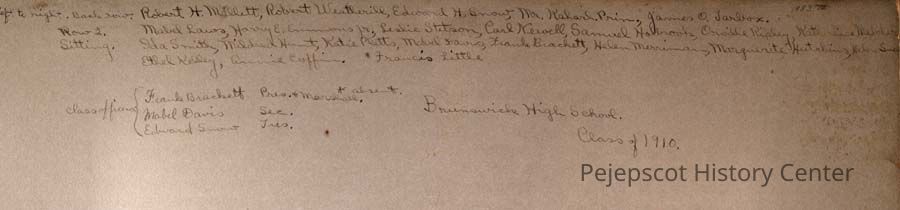 left to right. Back row. Robert H. Millett, Robert Weatherill, Edward H. Snow, Mr. Prin., James O. Tarbox.
Row 2. Mabel Laws, Harry E. Emmons Jr., Leslie Stetson, Carl Newell, Samuel Holbrook, Orville Ridley,
Sitting. Smith, Mildred Hunt, Katie Pletts, Mabel Davis, Frank Brackett, Helen Merriman, Marguerite Hutchins,
Ethel Kelley, Annie Coffin. *Francis Little
* absent.
class officers { Frank Brackett Pres. + Marshall.
Mabel Davis Sec.
Edward Snow Tres.
Brunswick High School.
Class of 1910.
Pejepscot History Center